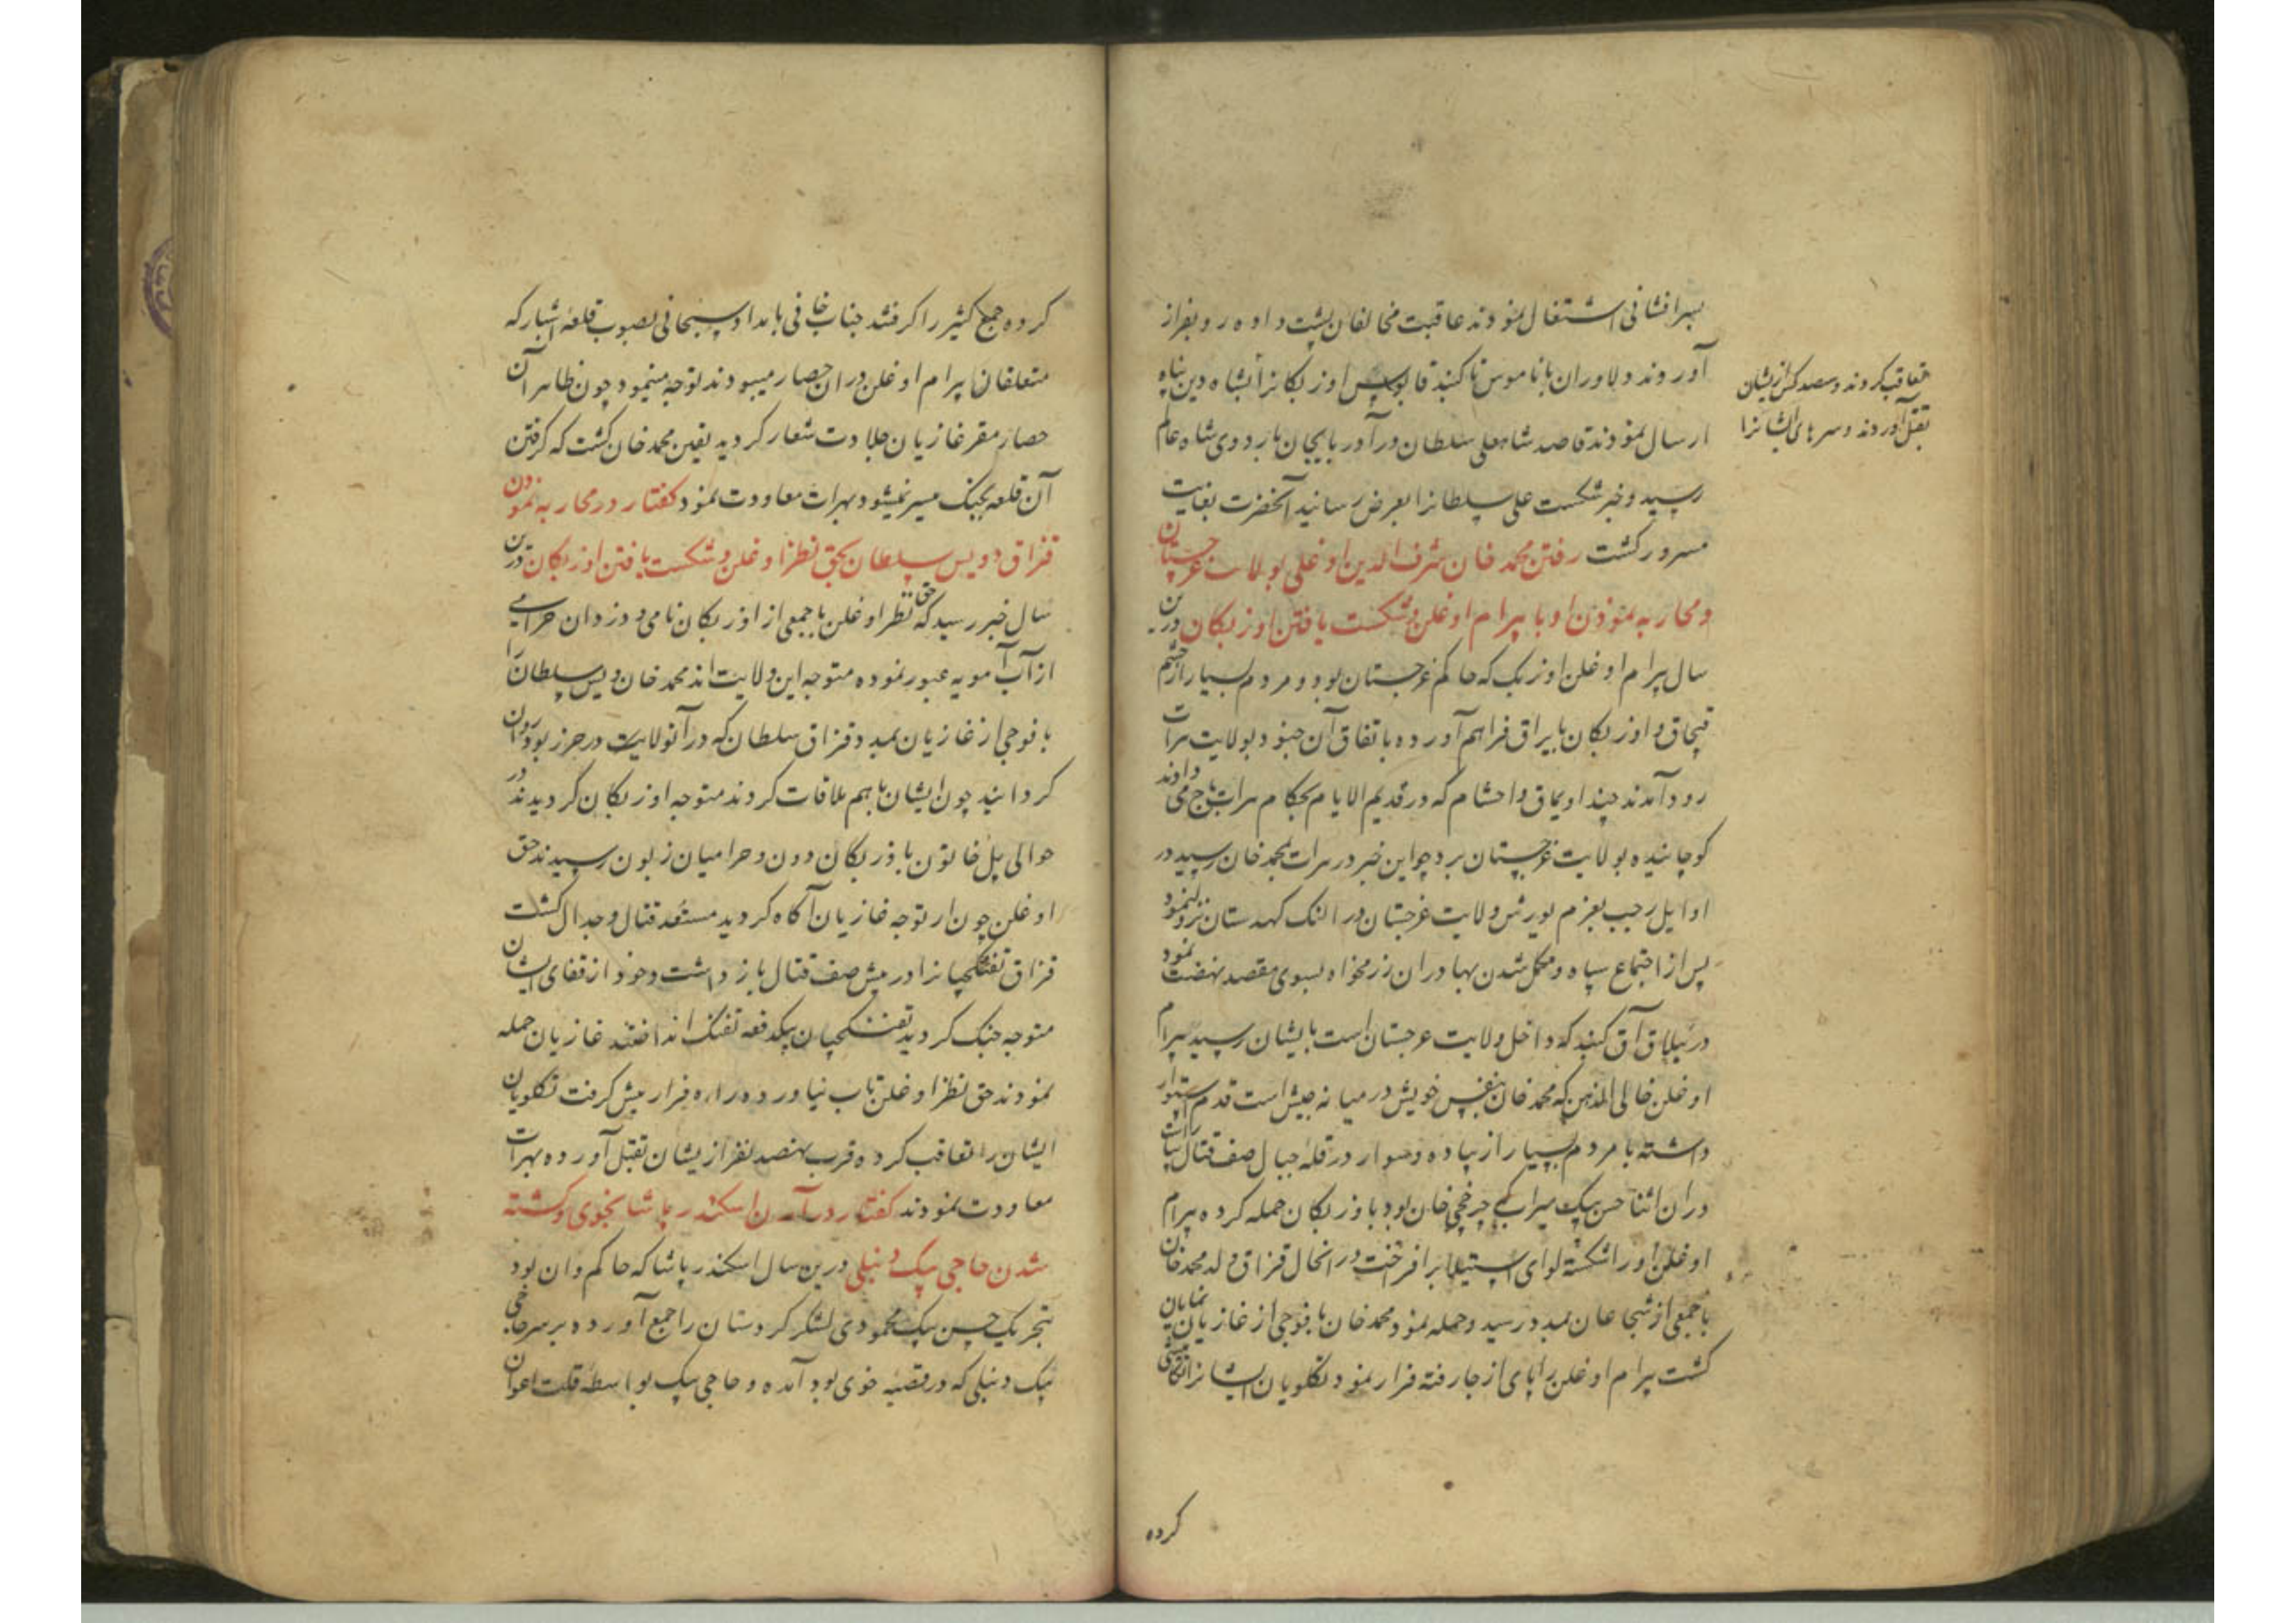 بسرافشانی اشتغال نمودند عاقبت مخالفان پشت داده رو بفرار
آوردند و دلاوران با ناموس تا کنبد قابوس اوزبکانرا بشاه دین پناه
تعاقب کردند و سصد کس ازیشان
بقتل آوردند و سرهای ایشانرا
ارسال نمودند قاصد شاهعلی سلطان در آذربایجان باردوی شاه عالم
رسید و خبر شکست علی سلطانرا بعرض رسانید آنحضرت بغایت
مسرور کشت رفتن محمد خان شرف الدین اوغلی بولایت غرجستان
و محاربه نمودن او با پیرام اوغلن و شکست یافتن اوزبکان درین
سال پیرام اوغلن اوزبک که حاکم غرجستان بود و مردم بسیار از حشم
قبچاق و اوزبکان با یراق فراهم آورده باتفاق آن جنود بولایت هرات
رود آمدند چند اویماق و احشام که در قدیم الایام بحکام هرات باج می دادند
کوچانیده بولایت غرجستان برد چو این خبر در هرات بمحمد خان رسید در
اوایل رجب بعزم یورش ولایت غرجستان در النک کهدستان نزول نمود
پس از اجتماع سپاه و مکمل شدن بهادران رزمخواه بسوی مقصد نهضت نمود
در ییلاق آق کنبد که داخل ولایت غرجستان است بایشان رسید پیرام
اوغلن خالی الذهن که محمد خان بنفس خویش در میانه جیش است قدم استوار
داشته با مردم بسیار از پیاده و سوار در قله جبال صف قتال بیاراست
در ان اثنا حسن بیک میراب که چرخچی خان بود باوزبکان حمله کرده پیرام
اوغلن او را شکسته لوای استیلا برافراخت در انحال قزاق ولد محمد خان
با جمعی از شجاعان بمدد رسید و حمله نمود محمد خان با فوجی از غازیان نمایان
کشت پیرام اوغلن را پای از جا رفته فرار نمود تکلویان ایشانرا تکامشی
کرده
کرده جمع کثیر را کرفتند جناب خانی بامداد سبحانی بصوب قلعه اشبار که
متعلقان پیرام اوغلن دران حصار میبودند توجه مینمود چون ظاهر آن
حصار مقر غازیان جلادت شعار کردید یقین محمد خان کشت که کرفتن
آن قلعه بجنک میسر نمیشود بهرات معاودت نمود کفتار در محاربه نمودن
قزاق و ویس سلطان بحق نظر اوغلن و شکست یافتن اوزبکان درین
سال خبر رسید که حق نظر اوغلن با جمعی از اوزبکان نامی و دزدان حرامی
از آب آمویه عبور نموده متوجه این ولایت اند محمد خان ویس سلطان را
با فوجی از غازیان بمدد قزاق سلطان که در آنولایت در حرز بود روان
کردانید چون ایشان باهم ملاقات کردند متوجه اوزبکان کردیدند در
حوالی پل خاتون باوزبکان دون و حرامیان زبون رسیدند حق
اوغلن چون از توجه غازیان آکاه کردید مستعد قتال و جدال کشت
قزاق تفنکچیانرا در پیش صف قتال باز داشت و خود از قفای ایشان
متوجه جنک کردید تفنکچیان بیکدفعه تفنک انداختند غازیان حمله
نمودند حق نظر اوغلن تاب نیاورده راه فرار پیش کرفت تکلویان
ایشان را تعاقب کرده قرب بهفصد نفر ازیشان بقتل آورده بهرات
معاودت نمودند کفتار در آمدن اسکندر پاشا بخوی و کشته
شدن حاجی بیک دنبلی درین سال اسکندر پاشا که حاکم وان بود
بتحریک حسن بیک محمودی لشکر کردستان را جمع آورده بر سر حاجی
بیک دنبلی که در قصبه خوی بود آمده و حاجی بیک بواسطه قلت اعوان